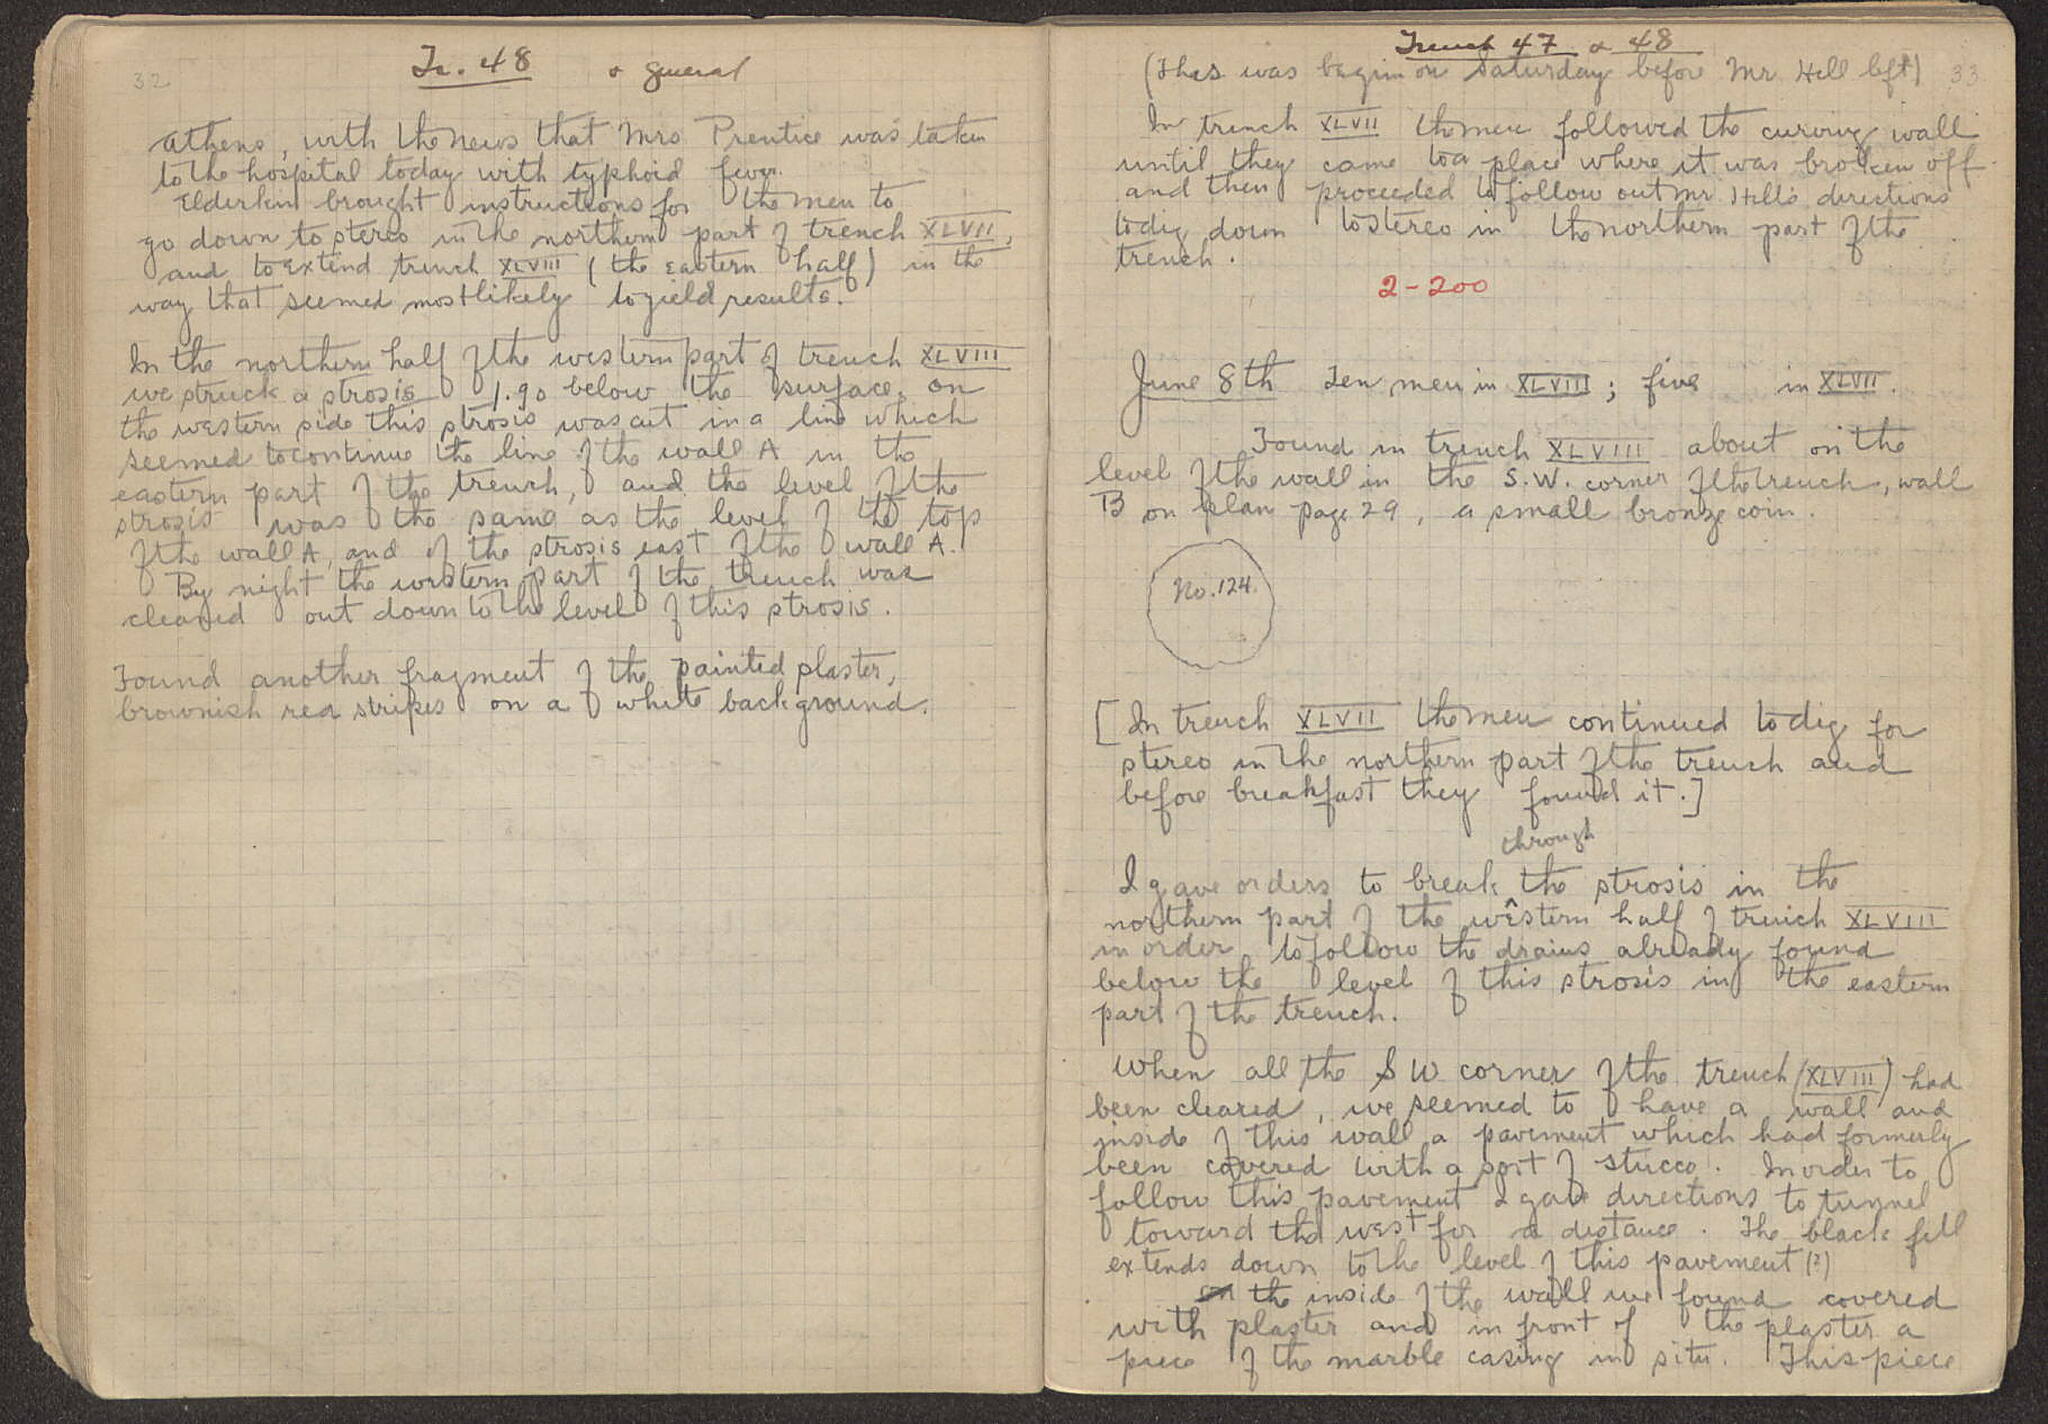 32
Tr. 48 & general
Athens, with the news that Mrs Prentice was taken
to the hospital today with typhoid fever.
Elderkin brought instructions for the men to
go down to stereo in the northern part of trench XLVII,
and to extend trench XLVIII (the eastern half) in the
way that seemed most likely to yield results.
In the northern half of the western part of trench XLVIII
we struck a strosis 1.90 below the surface. on
the western side this strosis was cut in a line which
seemed to continue the line of the wall A in the
eastern part of the trench, and the level of the
strosis was the same as the level of the top
of the wall A, and of the strosis east of the wall A.
By night the western part of the trench was
cleared out down to the level of this strosis.
Found another fragment of the painted plaster,
brownish red stripes on a white background.
Trench 47 & 48
33
(This was begun on Saturday before Mr Hill left)
In trench XLVII the men followed the curving wall
until they came to a place where it was broken off
and then proceeded to follow out Mr Hill's directions
to dig down to stereo in the northern part of the
trench.
2-200
June 8th Ten men in XLVIII; five in XLVII.
Found in trench XLVIII about on the
level of the wall in the S.W. corner of the trench, wall
B on plan page 29, a small bronze coin.
No. 124.
[In trench XLVII the men continued to dig for
stereo in the northern part of the trench and
before breakfast they found it.]
through
I gave orders to break the strosis in the
northern part of the western half of trench XLVIII
in order to follow the drains already found
below the level of this strosis in the eastern
part of the trench.
When all the SW corner of the trench (XLVIII) had
been cleared, we seemed to have a wall and
inside of this wall a pavement which had formerly
been covered with a sort of stucco. In order to
follow this pavement I gave directions to tunnel
toward the west for a distance. The black fill
extends down to the level of this pavement (?)
the inside of the wall we found covered
with plaster and in front of the plaster a
piece of the marble casing in situ. This piece